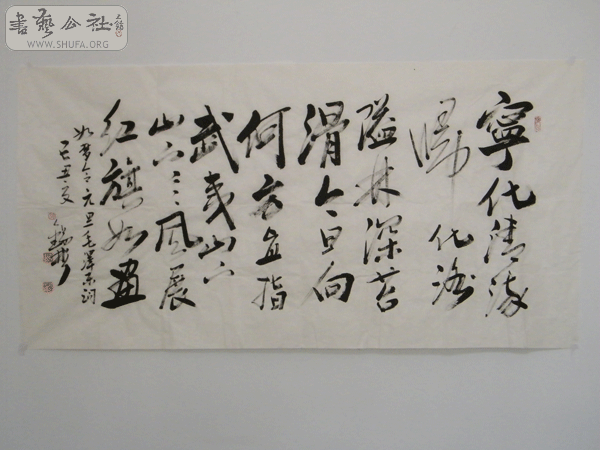 書藝公社
WWW.SHUFA.ORG
寧化清流
歸化路
隘林深苔
滑今日向
何方直指
武夷山下
山下〻〻風展
红旗如畫
如梦令元旦毛澤东词
己丑夏